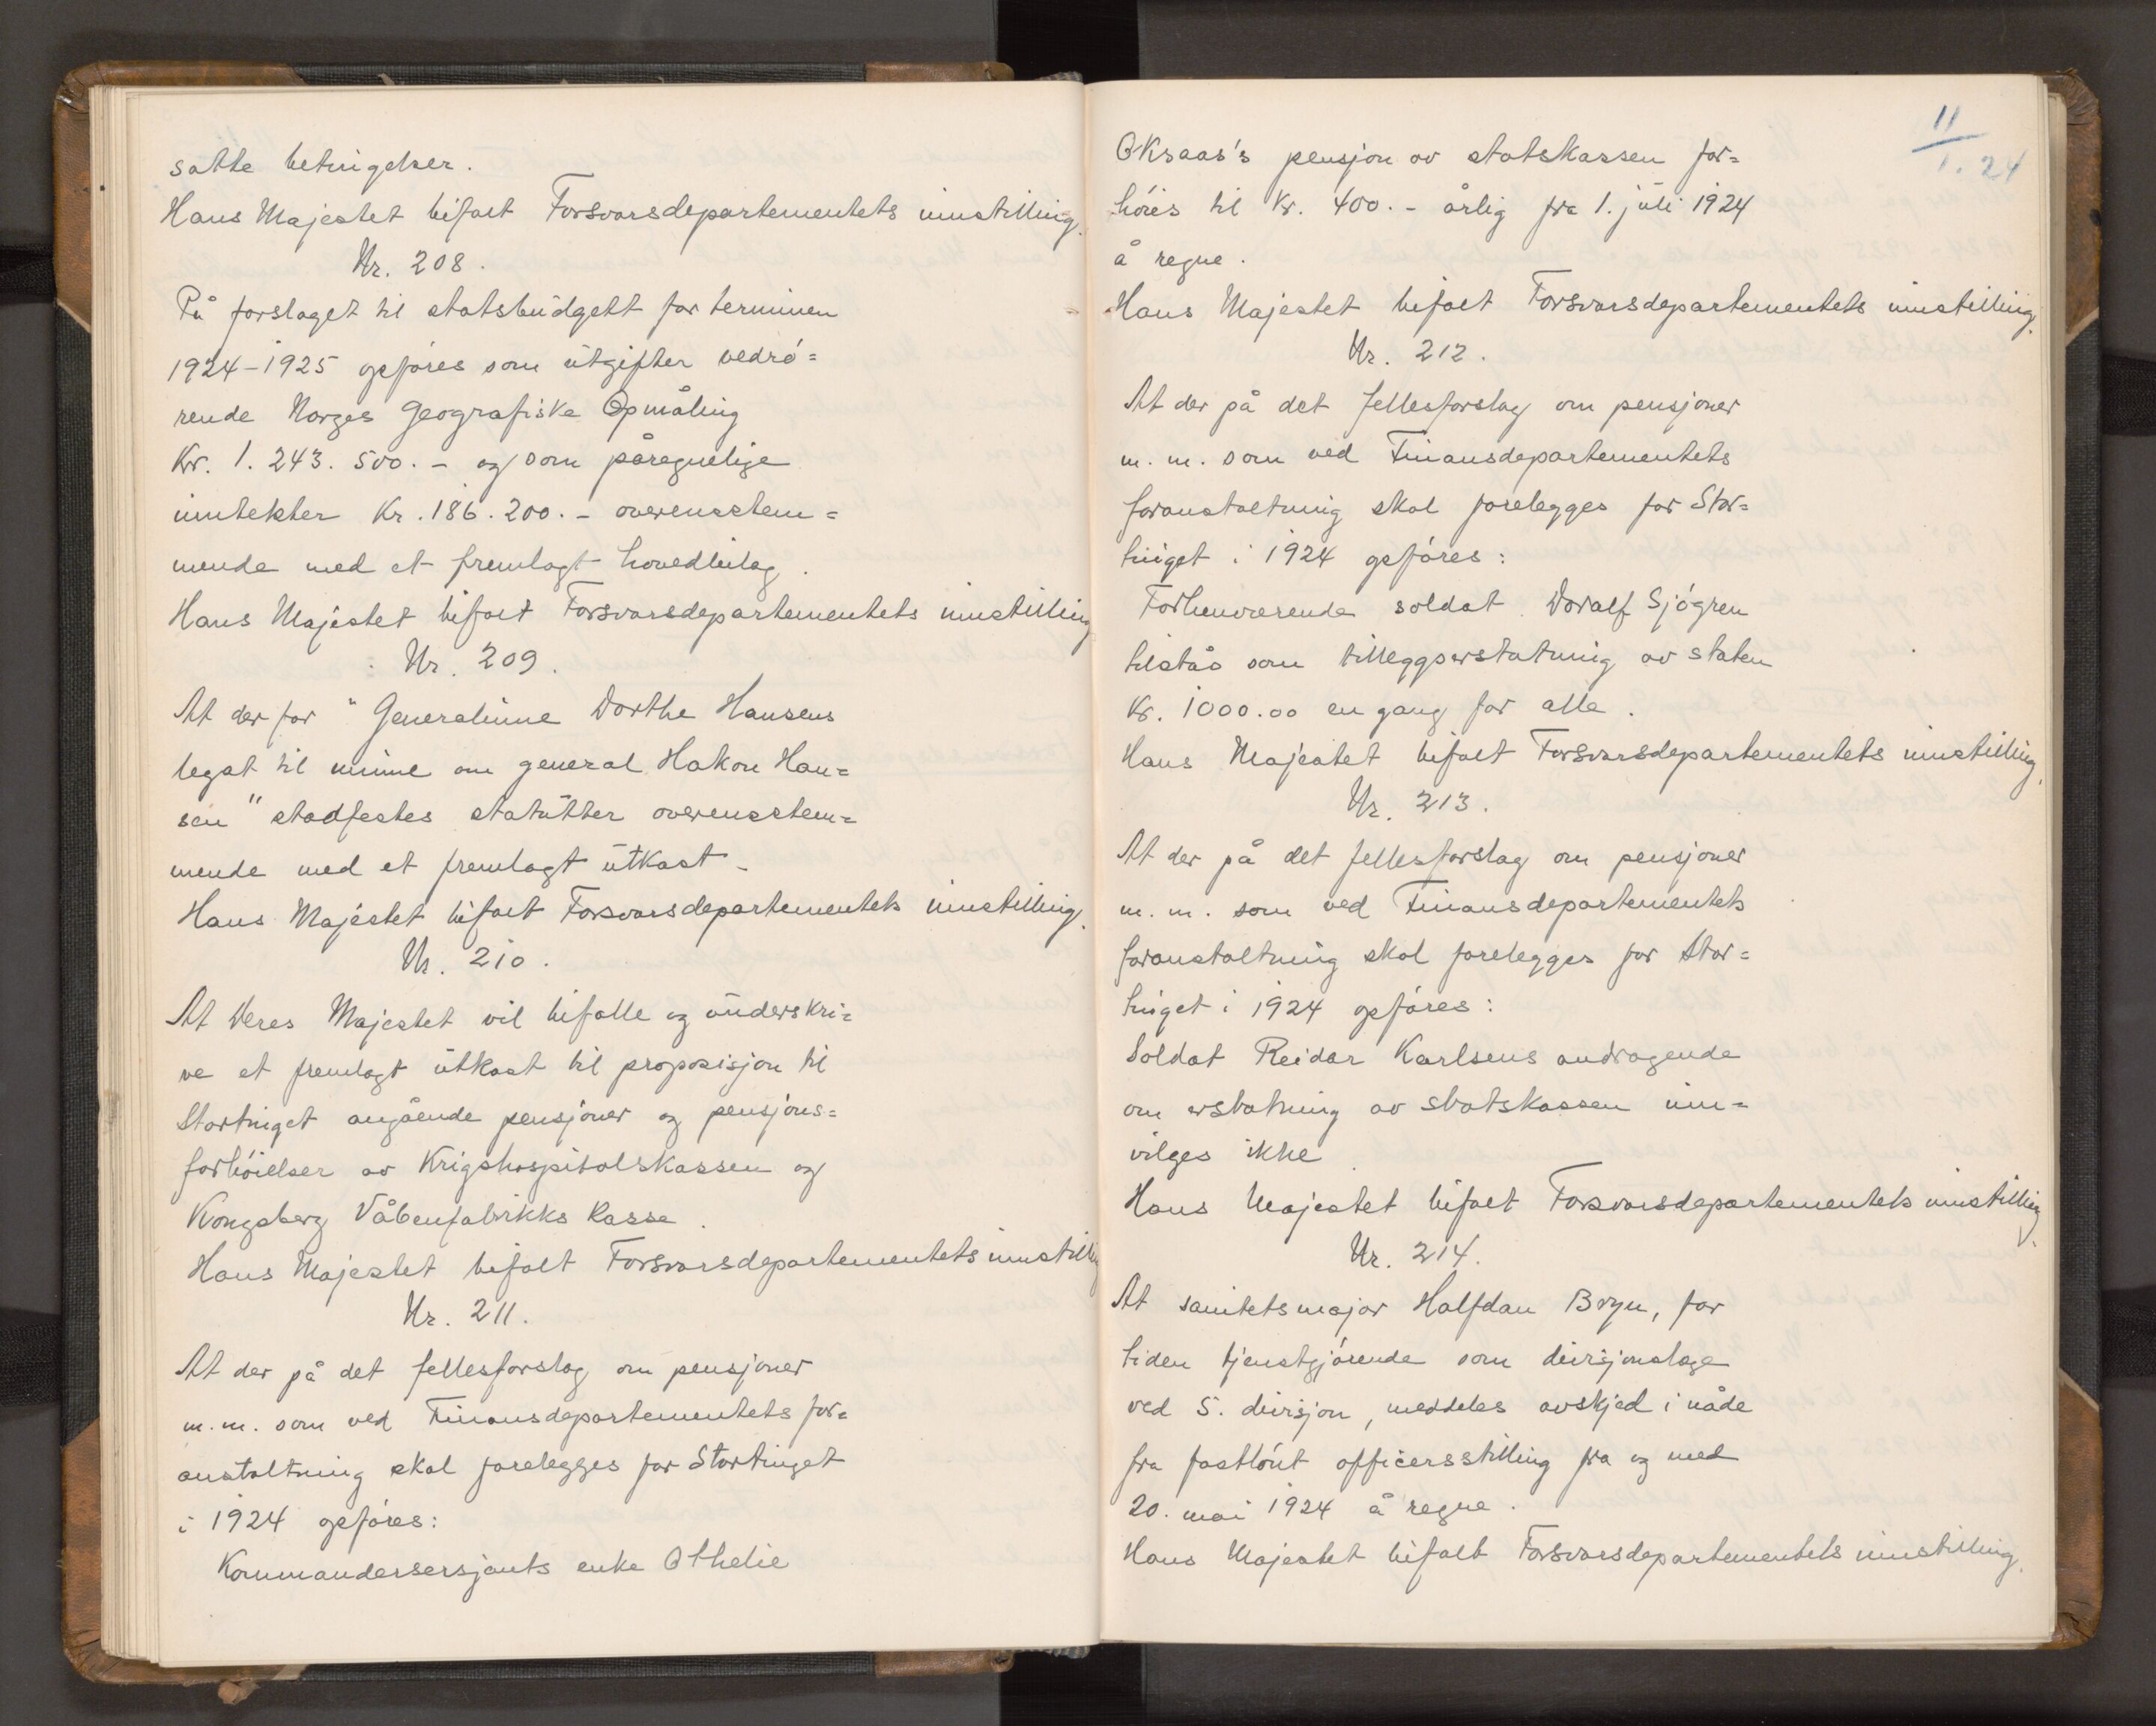 satte betingelser.
Hans Majestet bifalt Forsvarsdepartementets innstilling.
Nr. 208.
På forslaget til statsbudgett for terminen
1924-1925 opføres som utgifter vedrø=
rende Norges Geografiske Opmåling
Kr. 1.243.500.- og som påregnelige
inntekter Kr. 186.200.- overensstem=
mende med et fremlagt hovedbilag.
Hans Majestet bifalt Forsvarsdepartementets innstilling
Nr. 209.
At der for "Generalinne Dorthe Hansens
legat til minne om general Hakon Han=
sen" stadfestes statutter overensstem=
mende med et fremlagt utkast.
Hans Majestet bifalt Forsvarsdepartementets innstilling.
Nr. 210.
At Deres Majestet vil bifalle og underskri=
ve et fremlagt utkast til proposisjon til
Stortinget angående pensjoner og pensjons=
forhøielser av Krigshospitalskassen og
Kongsberg Våbenfabrikks Kasse.
Hans Majestet bifalt Forsvarsdepartementets innstilling
Nr. 211.
At der på det fellesforslag om pensjoner
m.m. som ved Finansdepartementets for=
anstaltning skal forelegges for Stortinget
i 1924 opføres:
Kommandersersjants enke Othelie
11/1. 24
Oksaas's pensjon av statskassen for=
høies til Kr. 400.- årlig fra 1. juli 1924
å regne.
Hans Majestet bifalt Forsvarsdepartementets innstilling.
Nr. 212.
At der på det fellesforslag om pensjoner
m.m. som ved Finansdepartementets
foranstaltning skal forelegges for Stor=
tinget i 1924 opføres:
Forhenværende soldat Doralf Sjøgren
tilstås som tilleggserstatning av staten
Kr. 1000.00 en gang for alle.
Hans Majestet bifalt Forsvarsdepartementets innstilling.
Nr. 213.
At der på det fellesforslag om pensjoner
m.m. som ved Finansdepartementets
foranstaltning skal forelegges for Stor=
tinget i 1924 opføres:
Soldat Reidar Karlsens andragende
om erstatning av statskassen inn=
vilges ikke.
Hans Majestet bifalt Forsvarsdepartementets innstilling.
Nr. 214.
At sanitetsmajor Halfdan Bryn, for
tiden tjenstgjørende som divisjonslæge
ved 5. divisjon, meddeles avskjed i nåde
fra fastlønt officersstilling fra og med
20. mai 1924 å regne.
Hans Majestet bifalt Forsvarsdepartementets innstilling.